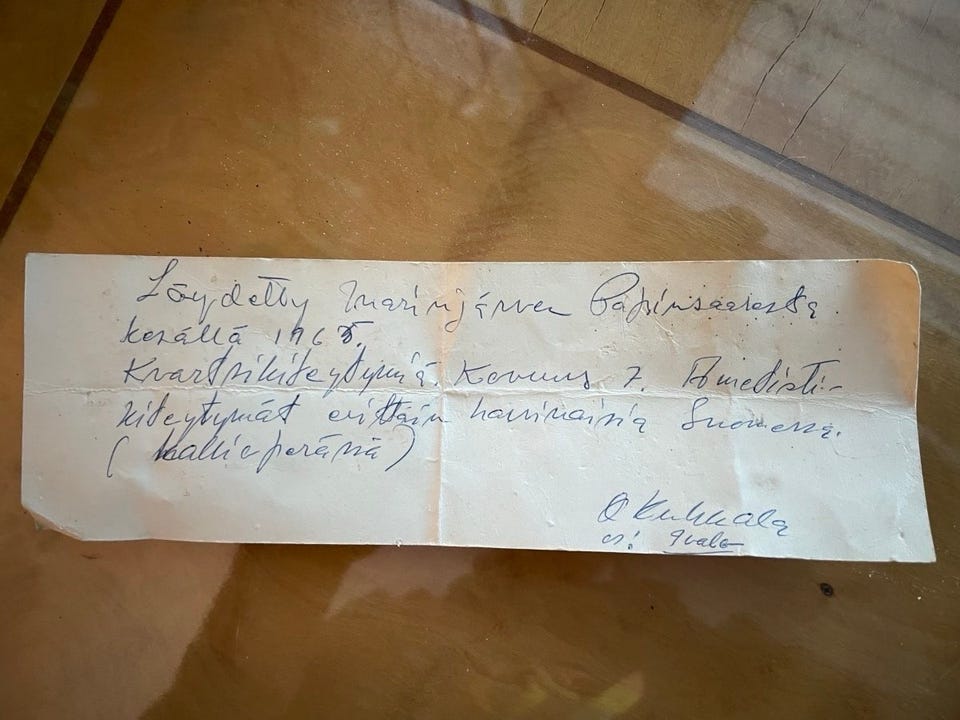 Löydetty Inarinjärven Papinsaaresta
kesällä 1965.
Kvartsikiteytymiä. Kovuus 7. Ametisti-
kiteytymät erittäin harvinaisia Suomessa.
(kallioperässä)
O Kukkala